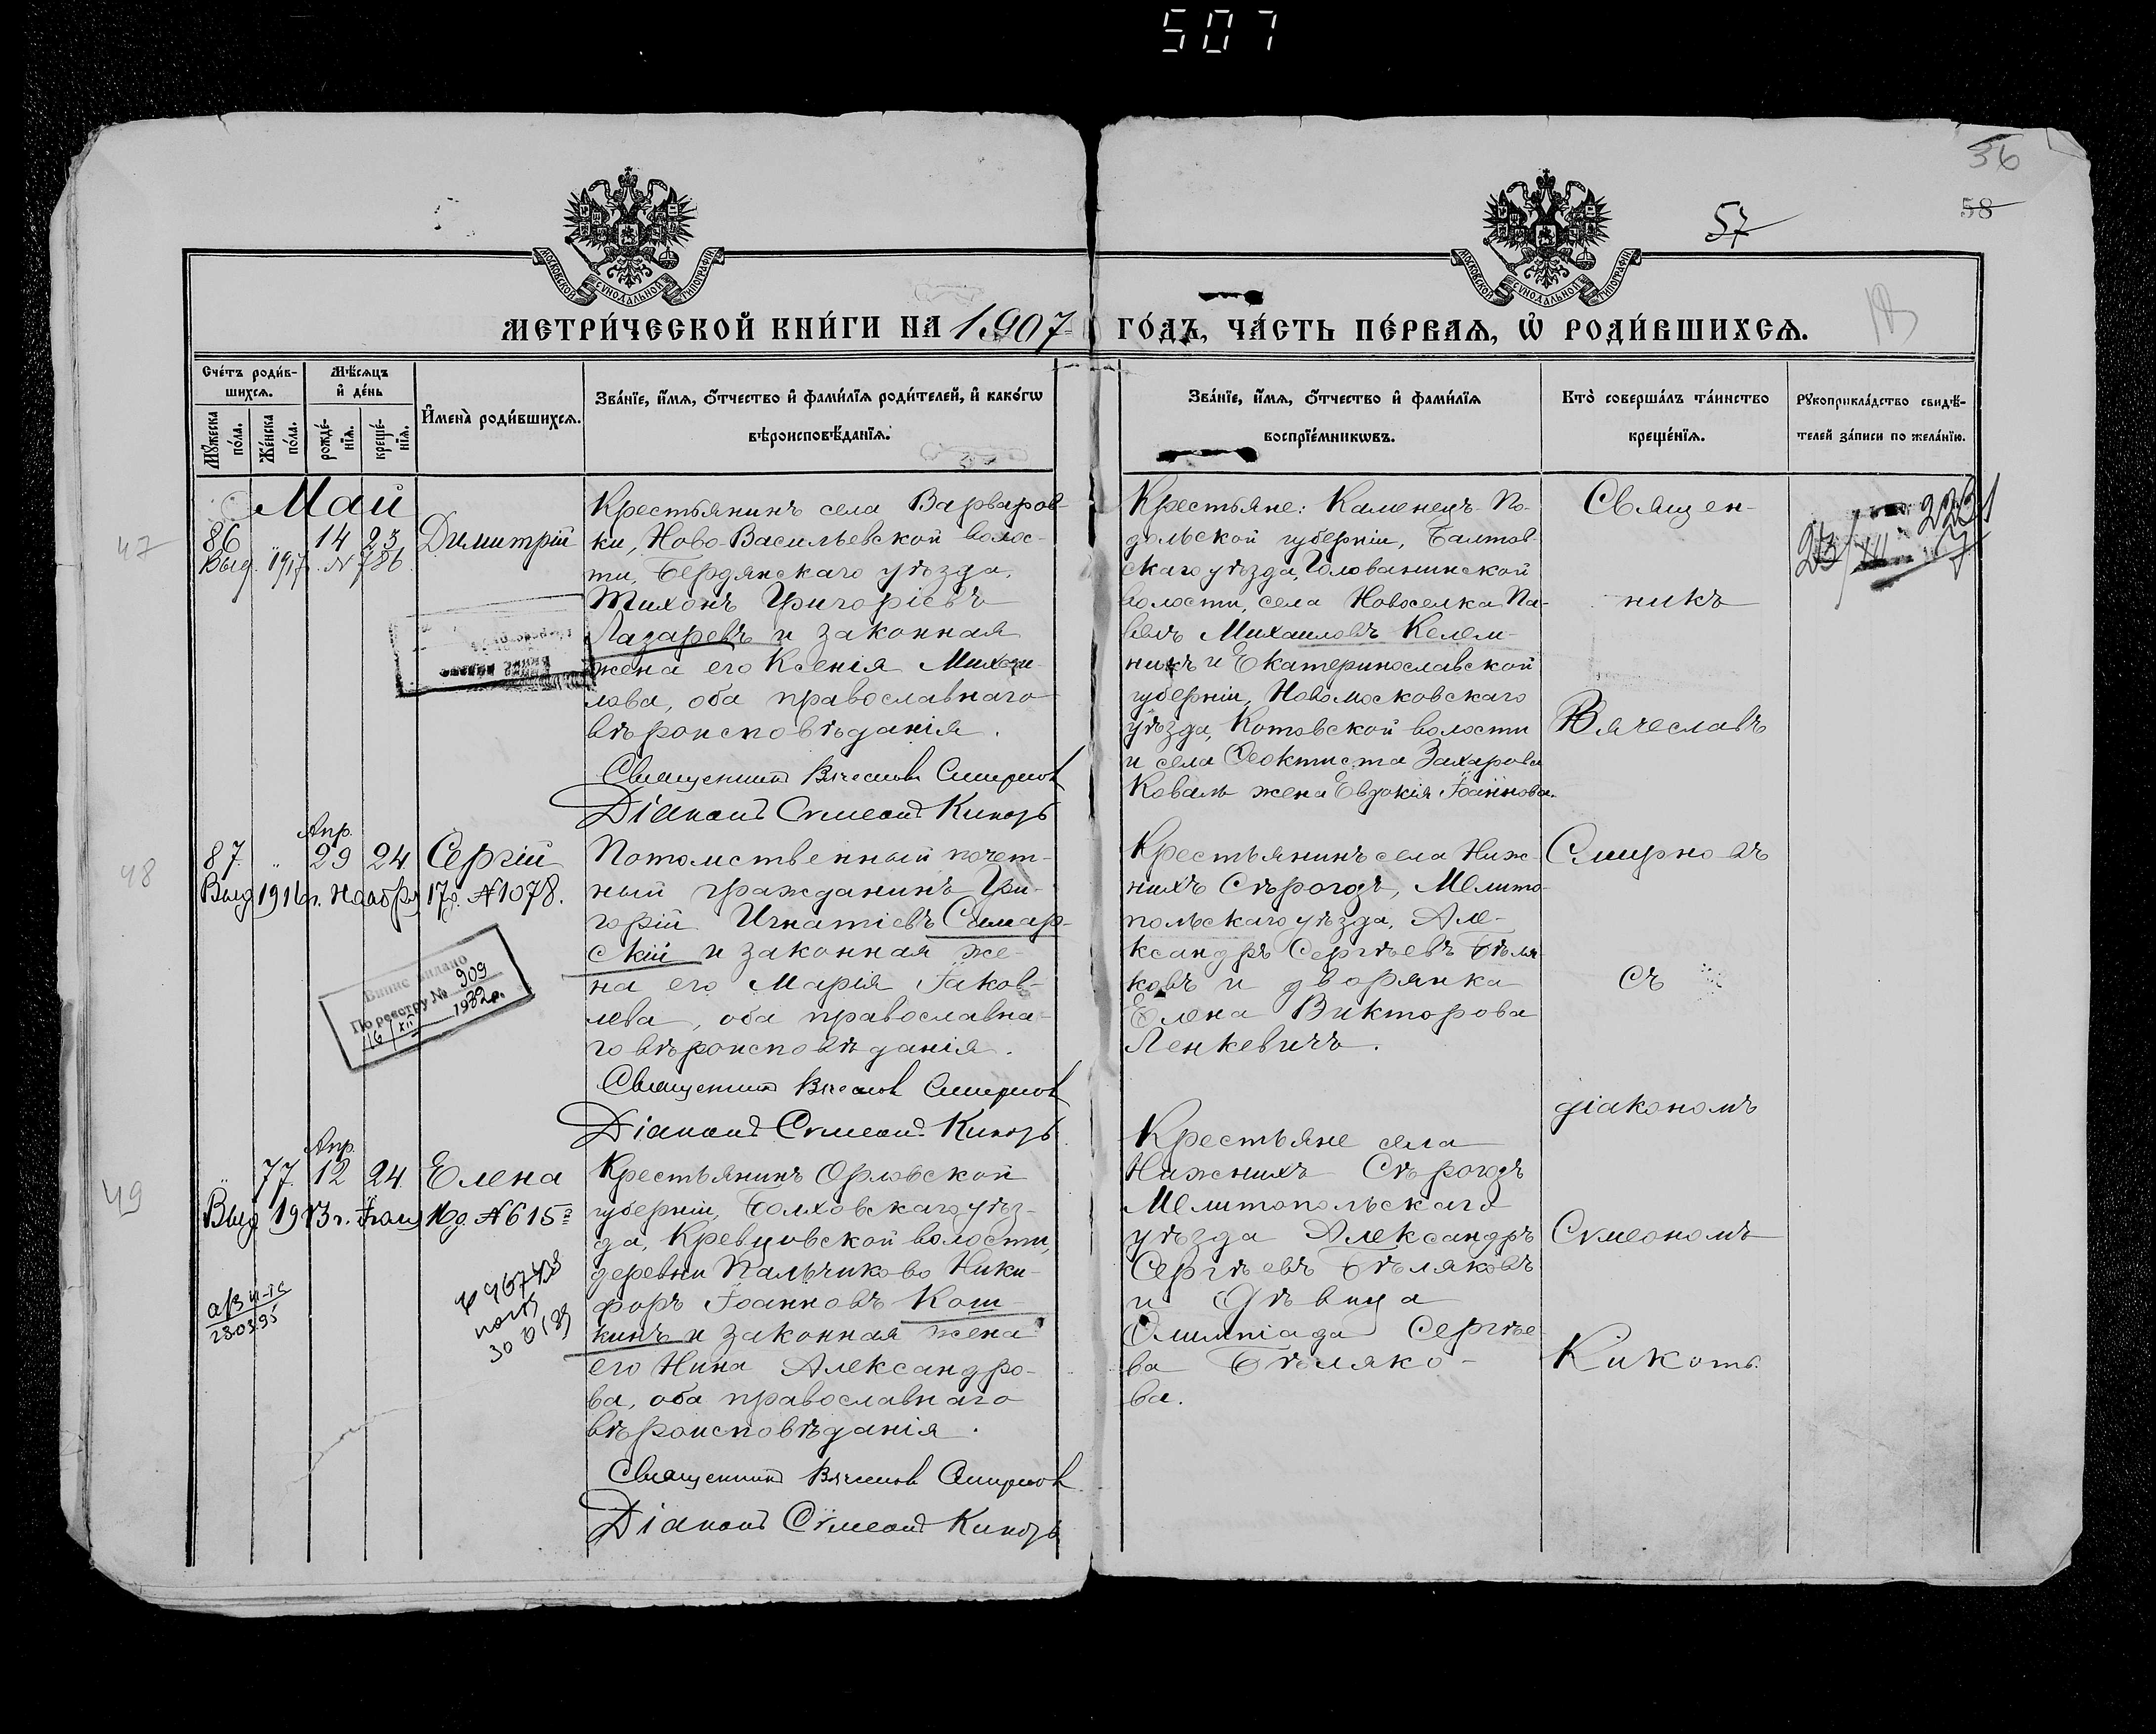 507
36
58
57
МОСКОВСКОЙ СУНОДАЛЬНОЙ ТИПОГРАФІИ
МОСКОВСКОЙ СУНОДАЛЬНОЙ ТИПОГРАФІИ
МЕТРИ́ЧЕСКОЙ КНИ́ГИ НА 1907 ГО́ДЪ, ЧА́СТЬ ПЕ́РВАѦ, Ѡ҆ РОДИ́ВШИХСѦ.
Сче́тъ роди́в-
шихсѧ.
Мꙋ́жеска по́ла.
Же́нска по́ла.
Мѣ́сѧцъ
и҆ де́нь
рожде́-
нїѧ.
креще́-
нїѧ.
И҆мена̀ роди́вшихсѧ.
Зва́нїе, и҆́мѧ, ѻ҆́тчество и҆ фами́лїѧ роди́телей, и҆ како́гѡ
вѣроисповѣ́данїѧ.
Зва́нїе, и҆́мѧ, ѻ҆́тчество и҆ фами́лїѧ
воспрїе́мникѡвъ.
Кто̀ соверша́лъ та́инство
креще́нїѧ.
Рꙋкоприкла́дство свидѣ́-
телей за́писи по жела́нїю.
Май
47
86 14 23 Димитрій
Выд. 1917 г. № 786
Крестьянинъ села Варваров-
ки, Ново-Васильевской волос-
ти, Бердянскаго уѣзда,
Тихонъ Григоріевъ
Лазаревъ и законная
жена его Ксенія Михаи-
лова, оба православнаго
вѣроисповѣданія.
Священникъ Вячеславъ Смирновъ
Діаконъ Сѵмеонъ Кикоть
Крестьяне: Каменецъ-По-
дольской губерніи, Балтов-
скаго уѣзда, Голованинской
волости, села Новоселка Па-
велъ Михаиловъ Келем-
никъ и Екатеринославской
губерніи, Новомосковскаго
уѣзда, Котовской волости
и села Ѳеоктиста Захарова
Коваль жена Евдокія Іоаннова.
48
Апр.
87 " 29 24 Сергій
Выд. 1916 г. Ноября 17 д. № 1078.
Випис видано
По реєстру № 909
16/XII 1932 р.
Потомственный почет-
ный гражданинъ Гри-
горій Игнатіевъ Самар-
скій и законная же-
на его Марія Іаков-
лева, оба православна-
го вѣроисповѣданія.
Священникъ Вячеславъ Смирновъ
Діаконъ Сѵмеонъ Кикоть
Крестьянинъ села Ниж-
нихъ Сѣрогозъ, Мелито-
польскаго уѣзда, Але-
ксандръ Сергѣевъ Бѣля-
ковъ и дворянка
Елена Викторова
Ленкевичъ.
49
Апр.
" 77 12 24 Елена
Выд. 1913 г. № 615
23.03.95
Крестьянинъ Орловской
губерніи, Болховскаго уѣз-
да, Кревцовской волости,
деревни Пальчиково Ники-
форъ Іоанновъ Кош-
кинъ и законная жена
его Нина Александро-
ва, оба православнаго
вѣроисповѣданія.
Священникъ Вячеславъ Смирновъ
Діаконъ Сѵмеонъ Кикоть
Крестьяне села
Нижнихъ Сѣрогозъ
Мелитопольскаго
уѣзда Александръ
Сергѣевъ Бѣляковъ
и дѣвица
Олимпіада Сергѣе-
ва Бѣляко-
ва.
Священ-
никъ
Вячеславъ
Смирновъ
съ
діакономъ
Сѵмеономъ
Кикоть.